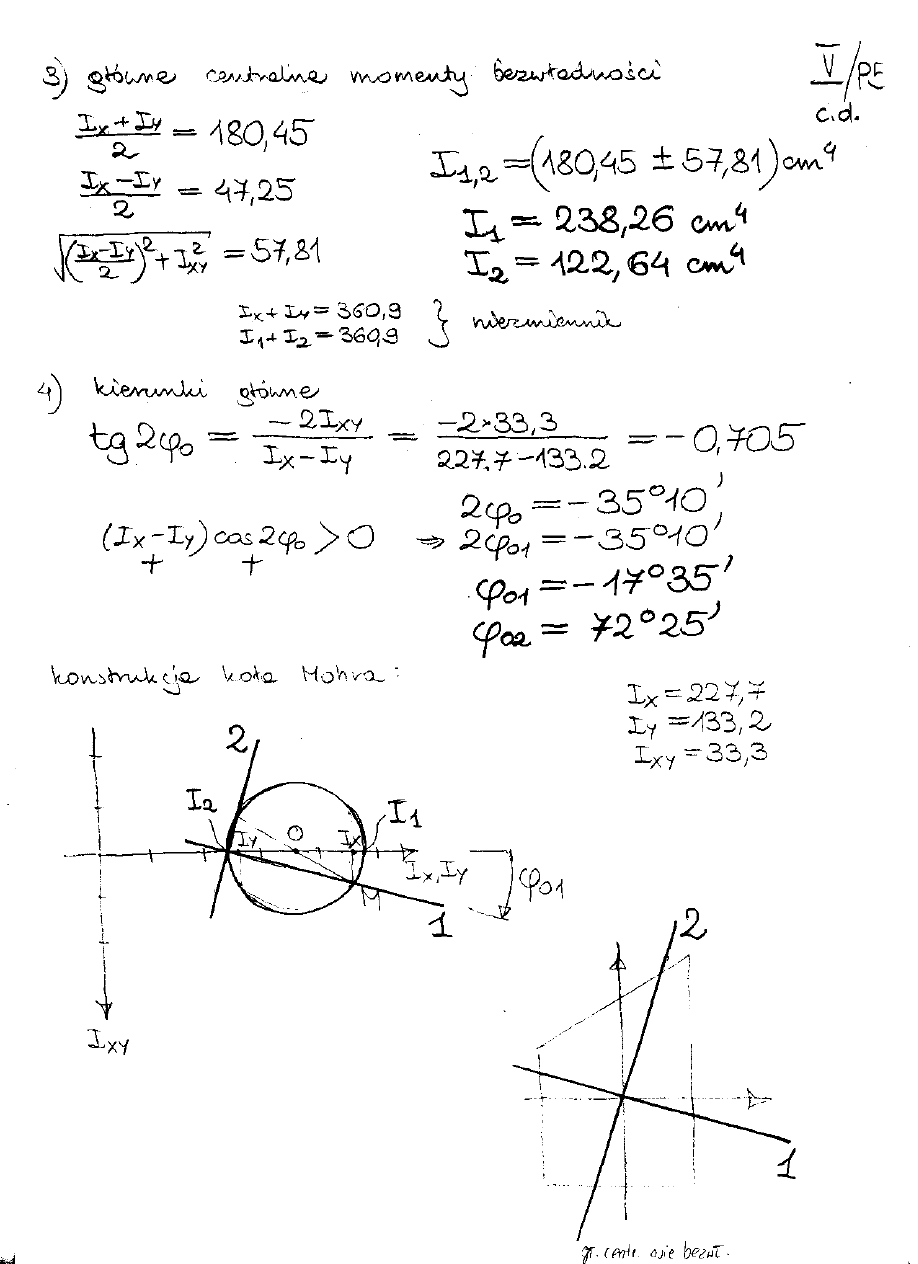 3) główne centralne momenty bezwładności
V/PE
c.d.
(Ix + Iy)/2 = 180,45
(Ix − Iy)/2 = 47,25
√(((Ix−Iy)/2)² + Ixy²) = 57,81
I1,2 = (180,45 ± 57,81) cm⁴
I1 = 238,26 cm⁴
I2 = 122,64 cm⁴
Ix + Iy = 360,9
I1 + I2 = 360,9
} niezmiennik
4) kierunki główne
tg 2φ0 = −2Ixy/(Ix − Iy) = −2×33,3/(227.7−133.2) = −0,705
2φ0 = −35°10'
(Ix − Iy) cos 2φ0 > 0 ⇒ 2φ01 = −35°10'
+ +
φ01 = −17°35'
φ02 = 72°25'
konstrukcja koła Mohra:
Ix = 227,7
Iy = 133,2
Ixy = 33,3
2
I2
I1
Iy
O
Ix
Ix, Iy
φ01
M
1
Ixy
2
1
gł. centr. osie bezwł.